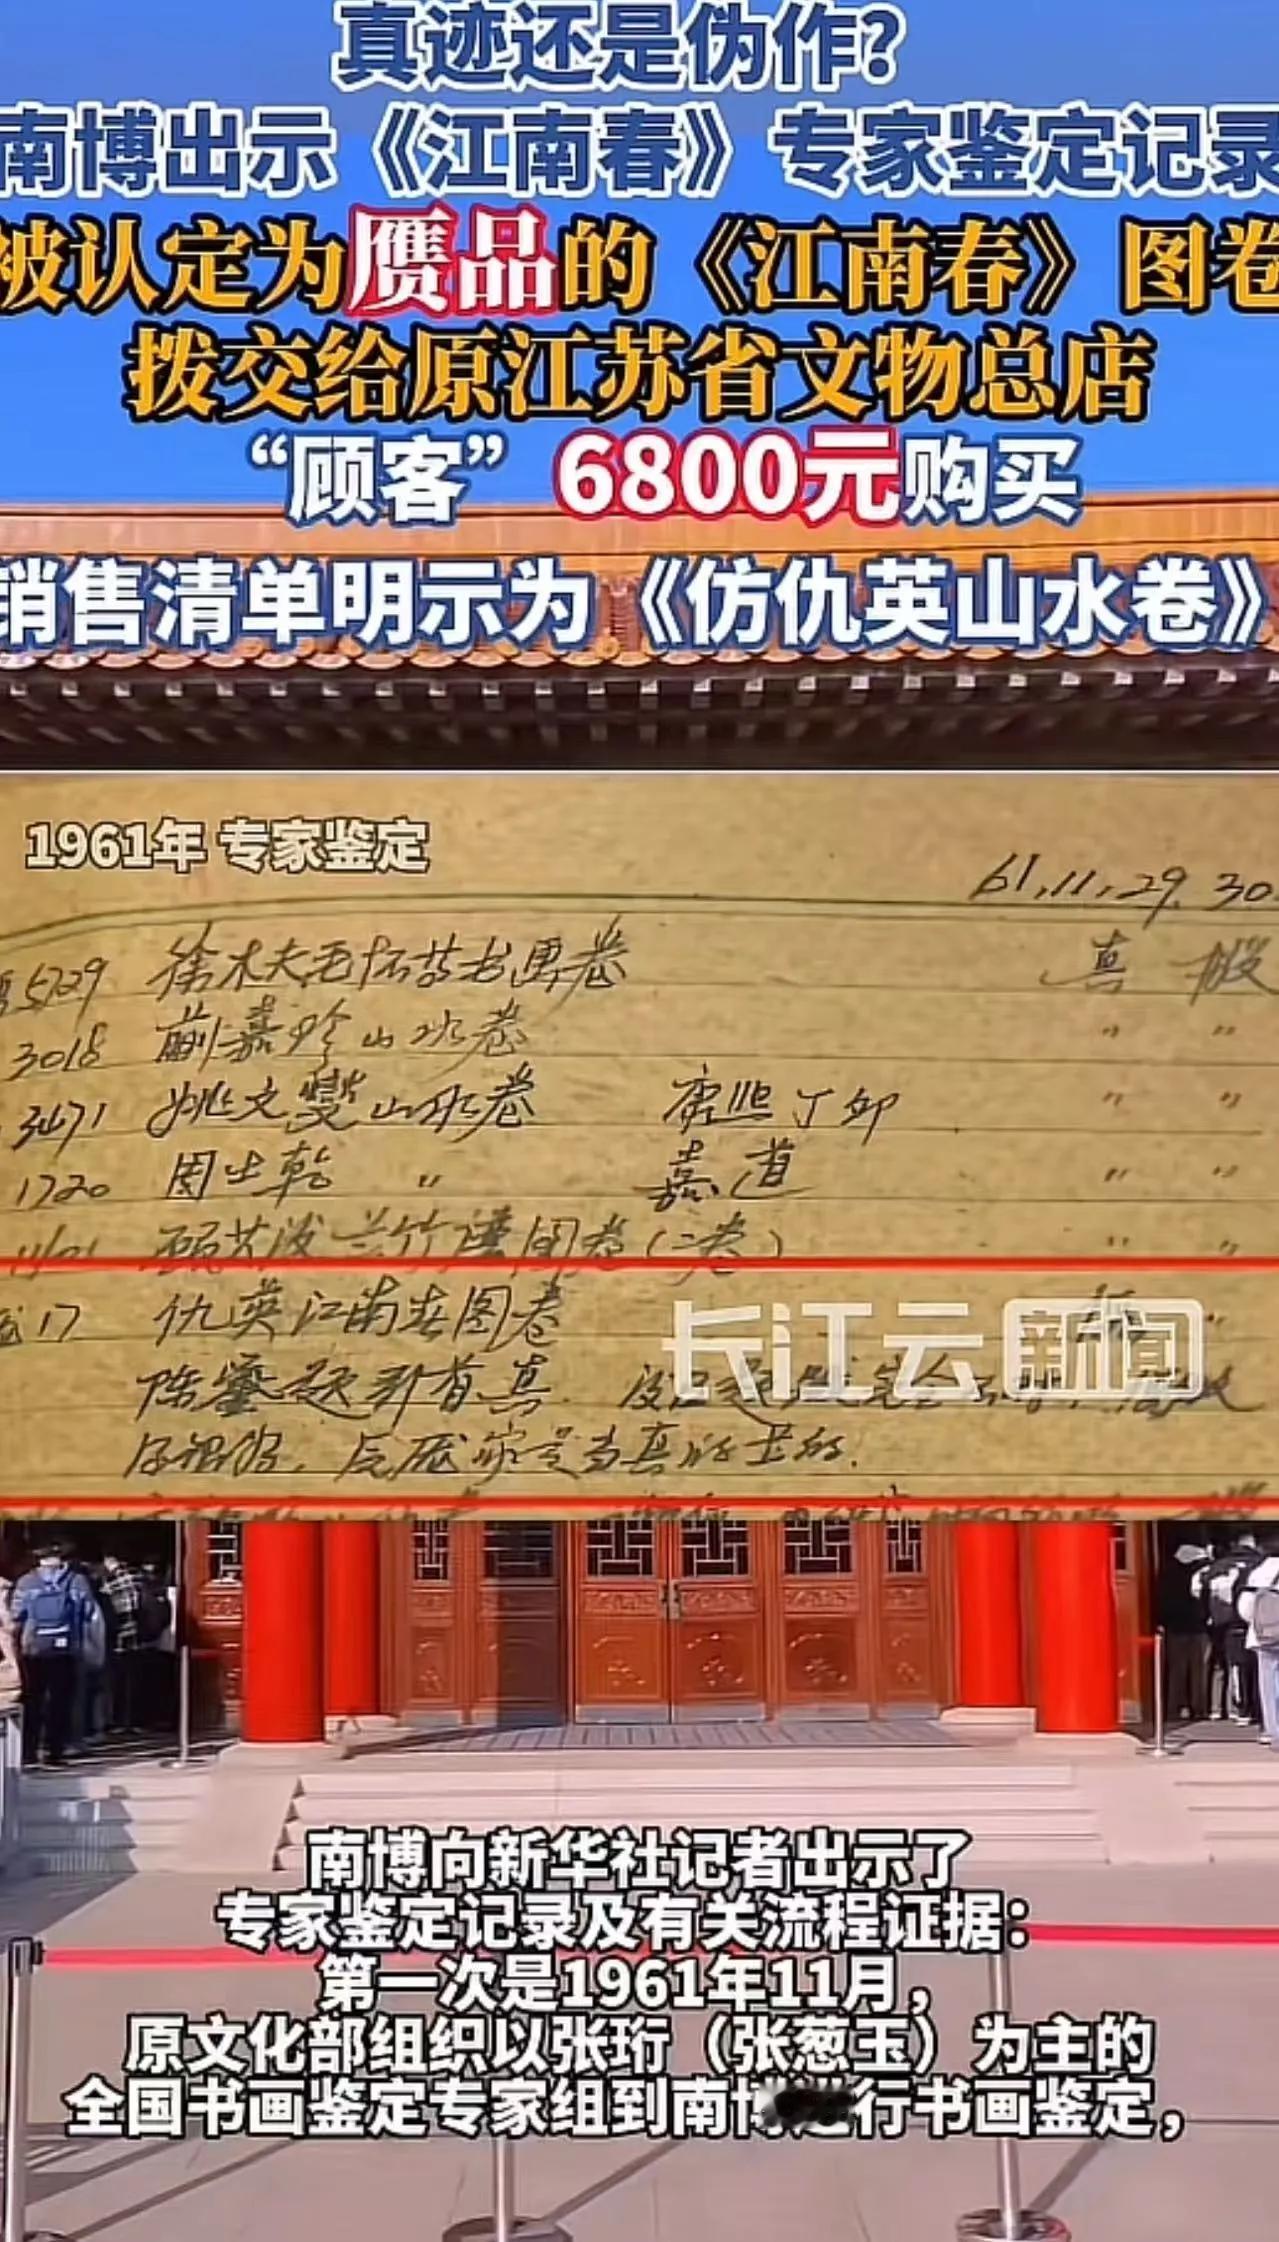 真迹还是伪作？
南博出示《江南春》专家鉴定记录
被认定为赝品的《江南春》图卷
拨交给原江苏省文物总店
“顾客”6800元购买
销售清单明示为《仿仇英山水卷》
1961年 专家鉴定
61,11,29.30
5729 徐木夫毛怀芬书画卷 真 假
3018 蒯嘉珍山水卷 〃 〃
3471 姚文燮山水卷 康熙丁卯 〃 〃
1720 周士乾 〃 嘉道 〃 〃
兰竹 图卷（二卷） 〃 〃
17 仇英江南春图卷
陈鎏题引首真
是当真
长江云新闻
南博向新华社记者出示了
专家鉴定记录及有关流程证据：
第一次是1961年11月，
原文化部组织以张珩（张葱玉）为主的
全国书画鉴定专家组到南博 行书画鉴定，